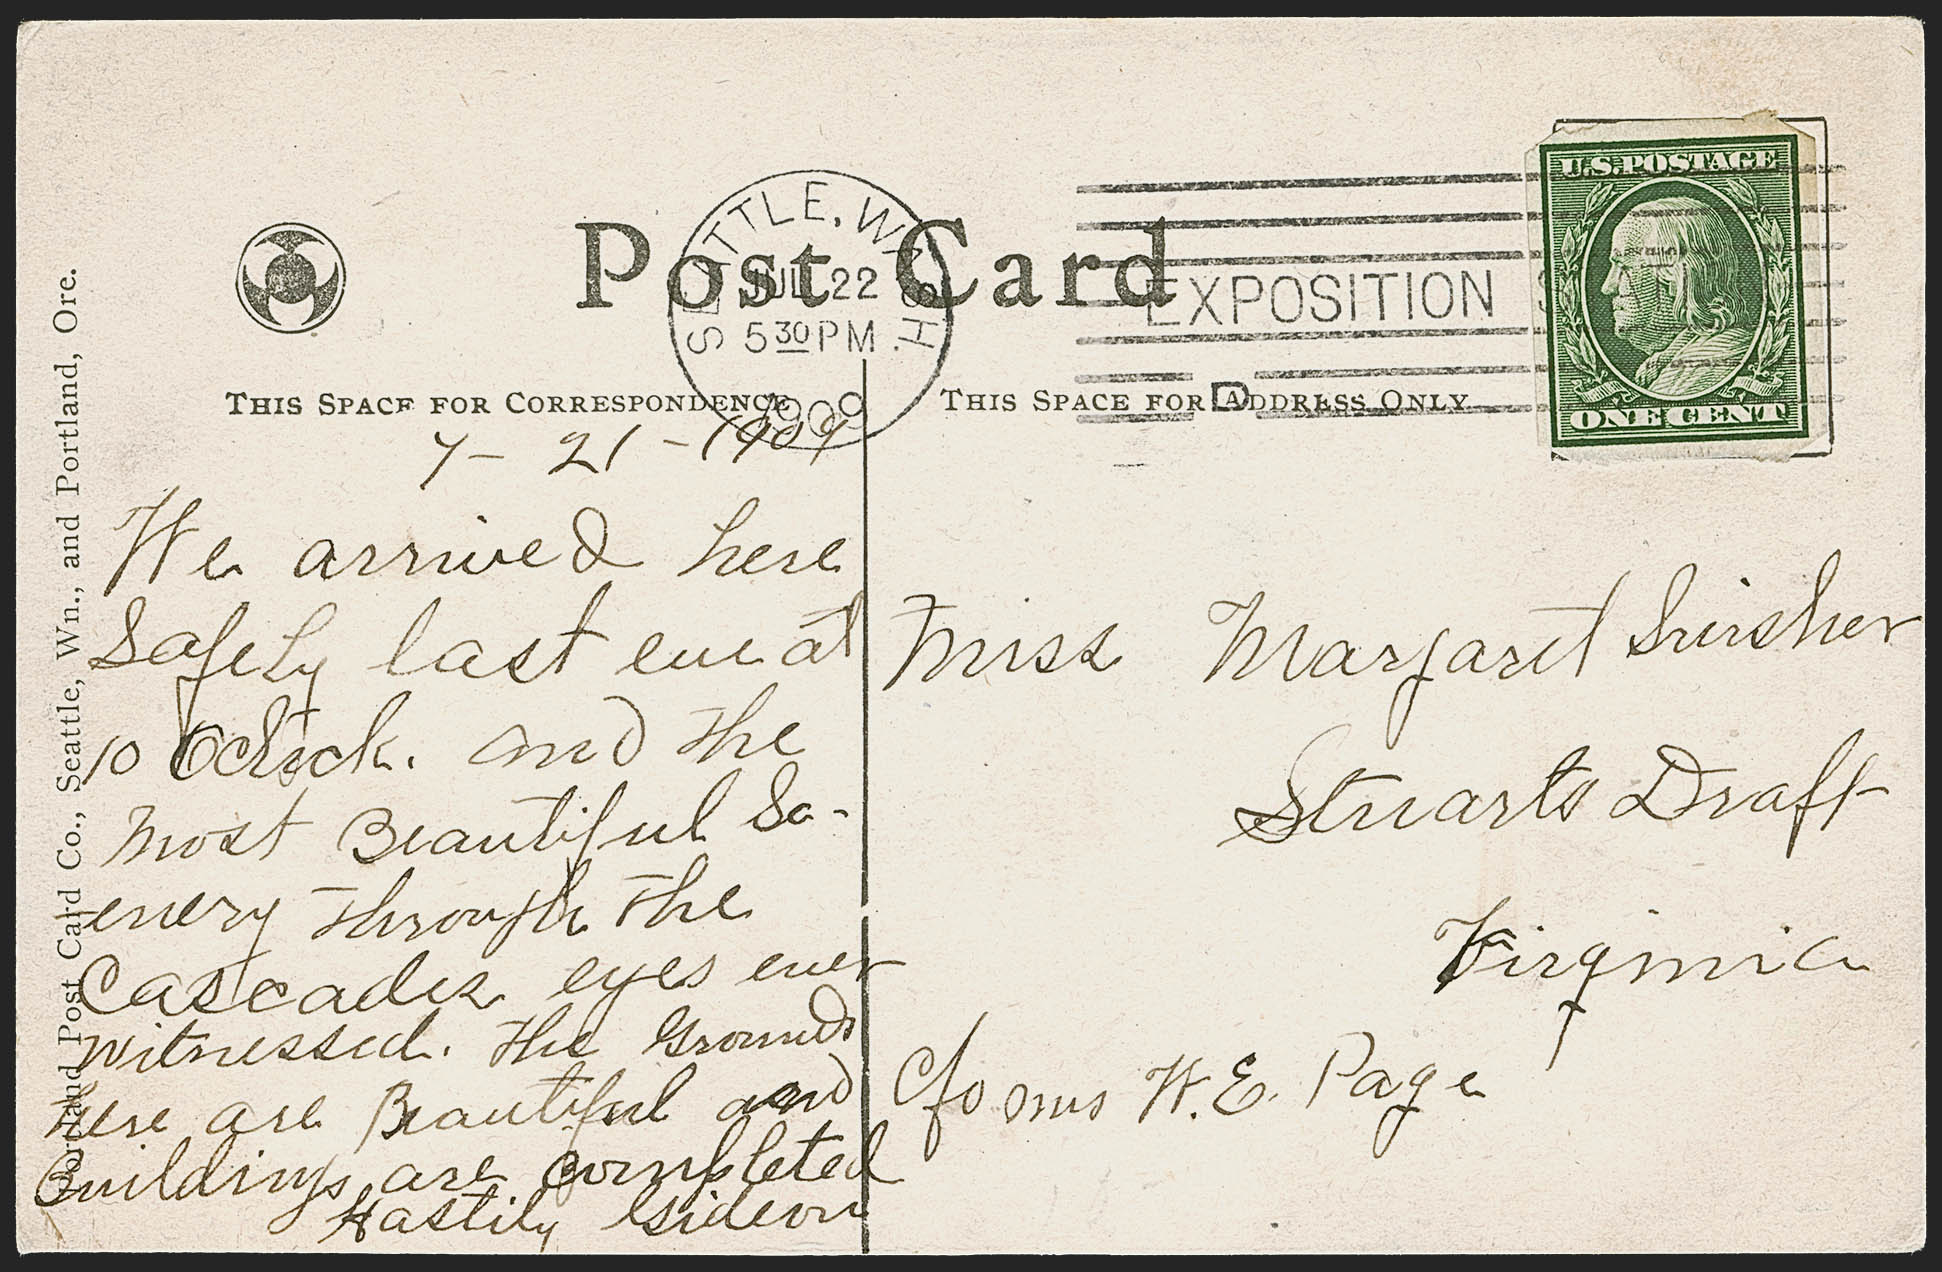 Post Card
SEATTLE, WASH.
JUL 22
5 30 PM
1909
EXPOSITION
U.S. POSTAGE
ONE CENT
THIS SPACE FOR CORRESPONDENCE
THIS SPACE FOR ADDRESS ONLY
Portland Post Card Co., Seattle, Wn., and Portland, Ore.
7 - 21 - 1909
We arrived here
Safely last eve at
10 Oclock. and the
most Beautiful Sc-
enery through the
Cascades eyes ever
witnessed. The Grounds
here are Beautiful and
Buildings are Completed
Hastily Gideon
Miss Margaret Swisher
Stuarts Draft
Virginia
C/o Mrs W. E. Page